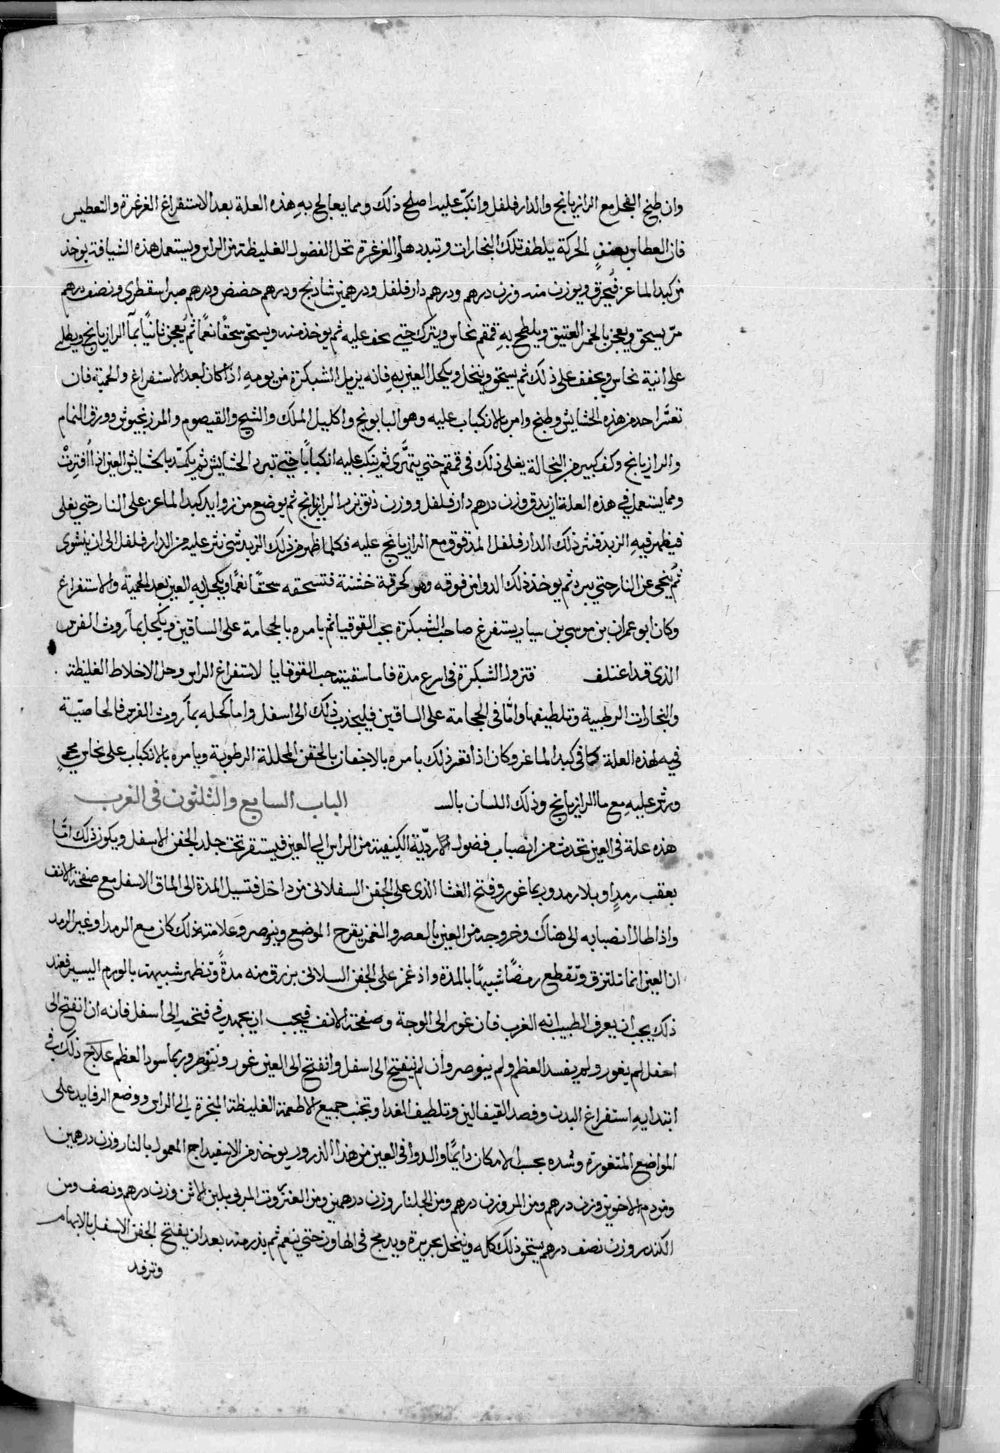 وان طبخ الفجل مع الرازيانج والدارفلفل وانكبّ عليه اصلح ذلك ومما يعالج به هذه العلة بعد الاستفراغ الغرغرة والتعطيس
فان العطاس بعنف الحركة يلطف تلك البخارات ويبددها والغرغرة تحل الفضول الغليظة من الراس ويستعمل هذه الشيافة يوخذ
من كبد الماعز فيحرق ويوزن منه وزن درهم ودرهم دارفلفل ودرهمين شادنج ودرهم حضض ودرهم صبر اسقطرى ونصف درهم
مرّ يسحق ويعجن بالخمر العتيق ويلطخ به قمقم نحاس ويترك حتى يجف عليه ثم يوخذ منه ويسحق سحقًا نعمًا ثم يعجن ثانيًا بمآ الرازيانج ويطلى
على انية نحاس ويجفف على ذلك ثم يسحق وينخل ويكحل العين به فانه يزيل الشبكرة من يومه اذا كان بعد الاستفراغ والحمية فان
تعسّر احد من هذه الحشايش وطبخ وامر بالانكباب عليه وهو البابونج واكليل الملك والشيح والقيصوم والمرزنجوش وورق النمام
والرازيانج وكف كبير من النخالة يغلى ذلك في قمقم حتى يتهرّى ثم ينكب عليه انكبابًا حتى تبرد الحشايش ثم يكمّد بالحشايش العين اذا افترتْ
ومما يستعمل في هذه العلة ان يدق وزن درهم دارفلفل ووزن دنق بزر الرازيانج ثم يوضع من زوايد كبد الماعز على النار حتى يغلى
فيظهر فيه الزبد فينثر ذلك الدارفلفل المدقوق مع الرازيانج عليه فكلما ظهر من ذلك الزبد شى نثر عليه من الدارفلفل الى ان ينشوى
ثم ينحى عن النار حتى يبرد ثم يوخذ ذلك الدوا من فوقه وهو كخرقة خشنة فتسحقه سحقًا نعمًا ويكحل به العين بعد الحمية والاستفراغ
وكان ابو عمران بن موسى بن سيار يستفرغ صاحب الشبكرة بحب القوقيا ثم يامره بالحجامة على الساقين ويكحل بمآ روث الفرس
الذى قد اعتلف فتزول الشبكرة في اسرع مدة فاما سقيته حب القوقايا لاستفراغ الراس وحل الاخلاط الغليظة
والبخارات الرطبية وتلطيفها وامّا في الحجامة على الساقين فليجذب ذلك الى اسفل واما كحله بمآ روث الفرس فالخاصّية
فيه لهذه العلة كما في كبد الماعز وكان اذا تعذر ذلك يامره بالاحقان بالحقن المحللة الرطوبة ويامره بالانكباب على نحاس محمىٍ
ورش عليه مع ما الرازيانج وذلك اللسان بالسـ الباب السابع والثلثون في الغرب
هذه علة في العين تحدث من انصباب فضول الارديّة الكيفية من الراس الى العين فيستقر تحت جلد الجفن الاسفل ويكون ذلك امّا
بعقب رمدٍ او بلا رمد وربما غور وفتح الغشا الذى على الجفن السفلانى من داخل فتسيل المدة الى الماق الاسفل مع صفحة الانف
واذا طال انصبابه الى هناك وخروجه من العين بالعصر والغمز يقرح الموضع وينوصر وعلامته ذلك كان مع الرمد او غير الرمد
ان العين انما تلتزق وتقطع رمصًا شبيهًا بالمدة واذ غمز على الجفن السلانى يرزق منه مدةً وتظهر شبيهت بالورم اليسير فعند
ذلك يجب ان يعرف الطبيب انه الغرب فان غور الى الوجة وصفحة الانف فيجب ان يجهد في فتحه الى اسفل فانه ان انفتح الى
اسفل لم يغور ولم يفسد العظم ولم ينوصر وأن لم ينفتح الى اسفل وانفتح الى العين غور وتنوصر وربما سود العظم علاج ذلك في
ابتدايه استفراغ البدن وفصد القيفالين وتلطيف الغدا وتجنب جميع الاطعمة الغليظة المبخرة الى الراس ووضع الرفايد على
المواضع المتغورة وشده بحسب الامكان دايمًا والدوا في العين من هذا الذرور يوخذ من الاسفيداج المعمول بالنار وزن درهمين
ومن دم الاخوين وزن درهم ومن المر وزن درهم ومن الجلنار وزن درهمين ومن العنزروت المربى بلبن الاتن وزن درهم ونصف ومن
الكندر وزن نصف درهم يسحق ذلك كله وينخل بحريرة ويدعج في الهاون حتى ينعم ثم يذر منه بعد ان يفتح الجفن الاسفل بالابهام
وترفد